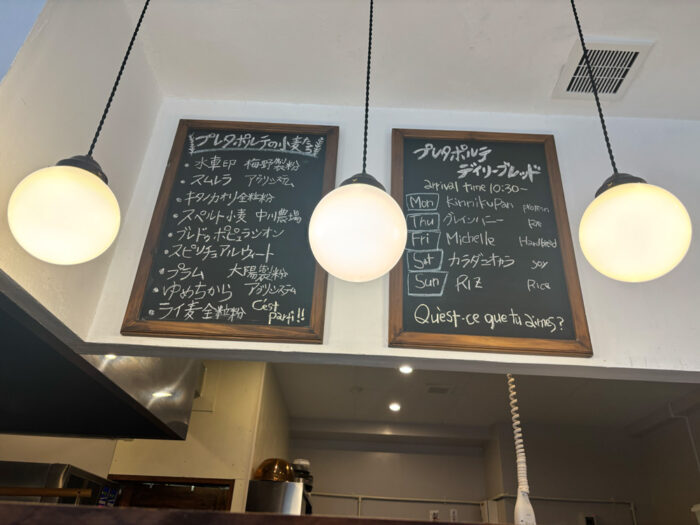 プレタポルテの小麦たち
・水車印 梅野製粉
・スムレラ アグリシステム
・キタノカオリ全粒粉
・スペルト小麦 中川農場
・ブレドゥポピュラシオン
・スピリチュアルウィート
・プラム 大陽製粉
・ゆめちから アグリシステム
・ライ麦全粒粉 C'est parfi!!
プレタポルテ
デイリーブレッド
arrival time 10:30~
Mon KinnikuPan protein
Thu グレインハニー
Fri Michelle Hardbread
Sat カラダヨロコブ soy
Sun Riz Rice
Qu'est-ce que tu aimes?